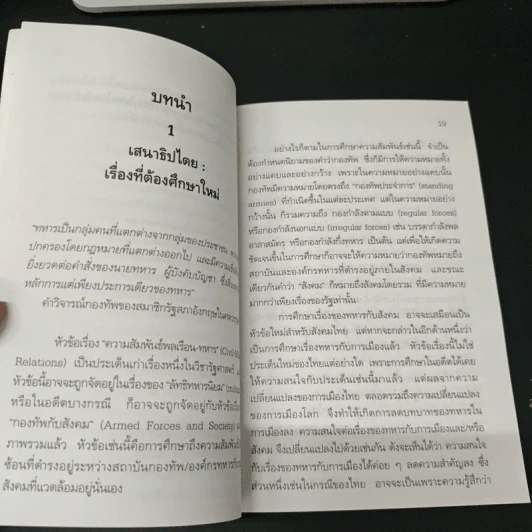 บทนำ
1
เสนาธิปไตย :
เรื่องที่ต้องศึกษาใหม่
"ทหารเป็นกลุ่มคนที่แตกต่างจากกลุ่มของประชาชน
ปกครองโดยกฎหมายที่แตกต่างออกไป และมีความ
ยิ่งยวดต่อคำสั่งของนายทหาร ผู้บังคับบัญชา
หลักการแต่เพียงประการเดียวของทหาร"
คำวิจารณ์กองทัพของสมาชิกรัฐสภาอังกฤษ
หัวข้อเรื่อง "ความสัมพันธ์พลเรือน-ทหาร"
Relations) เป็นประเด็นเก่าเรื่องหนึ่งในวิชารัฐศาสตร์
หัวข้อนี้อาจจะถูกจัดอยู่ในเรื่องของ "ลัทธิทหารนิยม"
หรือในอดีตบางกรณี ก็อาจจะถูกจัดอยู่กับหัวข้อ
"กองทัพกับสังคม" (Armed Forces and Society)
ภาพรวมแล้ว หัวข้อเช่นนี้คือการศึกษาถึงความสัมพันธ์
ซ้อนที่ดำรงอยู่ระหว่างสถาบันกองทัพ/องค์กรทหาร
สังคมที่แวดล้อมอยู่นั่นเอง
19
อย่างไรก็ตามในการศึกษาความสัมพันธ์เช่นนี้ จำเป็น
ต้องกำหนดนิยามของคำว่ากองทัพ ซึ่งก็มีการให้ความหมายทั้ง
อย่างแคบและอย่างกว้าง เพราะในความหมายอย่างแคบนั้น
กองทัพมีความหมายโดยตรงถึง "กองทัพประจำการ" (standing
armies) ที่กำเนิดขึ้นในแต่ละประเทศ แต่ในความหมายอย่าง
กว้างนั้น ก็รวมความถึง กองกำลังตามแบบ (regular forces)
หรือกองกำลังนอกแบบ (irregular forces) เช่น บรรดากำลังพล
อาสาสมัคร หรือกองกำลังกึ่งทหาร เป็นต้น แต่เพื่อให้เกิดความ
ชัดเจนขึ้นในการศึกษาก็อาจจะให้ความหมายว่ากองทัพหมายถึง
สถาบันและองค์กรทหารที่ดำรงอยู่ภายในสังคม และขณะ
เดียวกันคำว่า "สังคม" ก็หมายถึงสังคมโดยรวม ที่มีความหมาย
มากกว่าเพียงเรื่องของรัฐเท่านั้น
การศึกษาเรื่องของทหารกับสังคม อาจจะเสมือนเป็น
หัวข้อใหม่สำหรับสังคมไทย แต่หากจะกล่าวในอีกด้านหนึ่งว่า
เป็นการศึกษาเรื่องทหารกับการเมืองแล้ว หัวข้อเรื่องนี้ไม่ใช่
ประเด็นใหม่ของไทยแต่อย่างใด เพราะการศึกษาในอดีตได้เคย
ให้ความสนใจกับประเด็นเช่นนี้มาแล้ว แต่ผลจากความ
เปลี่ยนแปลงของการเมืองไทย ตลอดรวมถึงความเปลี่ยนแปลง
ของการเมืองโลก จึงทำให้เกิดการลดบทบาทของทหารใน
การเมืองลง ความสนใจต่อเรื่องของทหารกับการเมืองและ/หรือ
สังคม จึงเปลี่ยนแปลงไปด้วยเช่นกัน ดังจะเห็นได้ว่า ความสนใจ
กับเรื่องของทหารกับการเมืองได้ค่อย ๆ ลดความสำคัญลง ซึ่ง
ส่วนหนึ่งเช่นในกรณีของไทย อาจจะเป็นเพราะความรู้สึกว่า